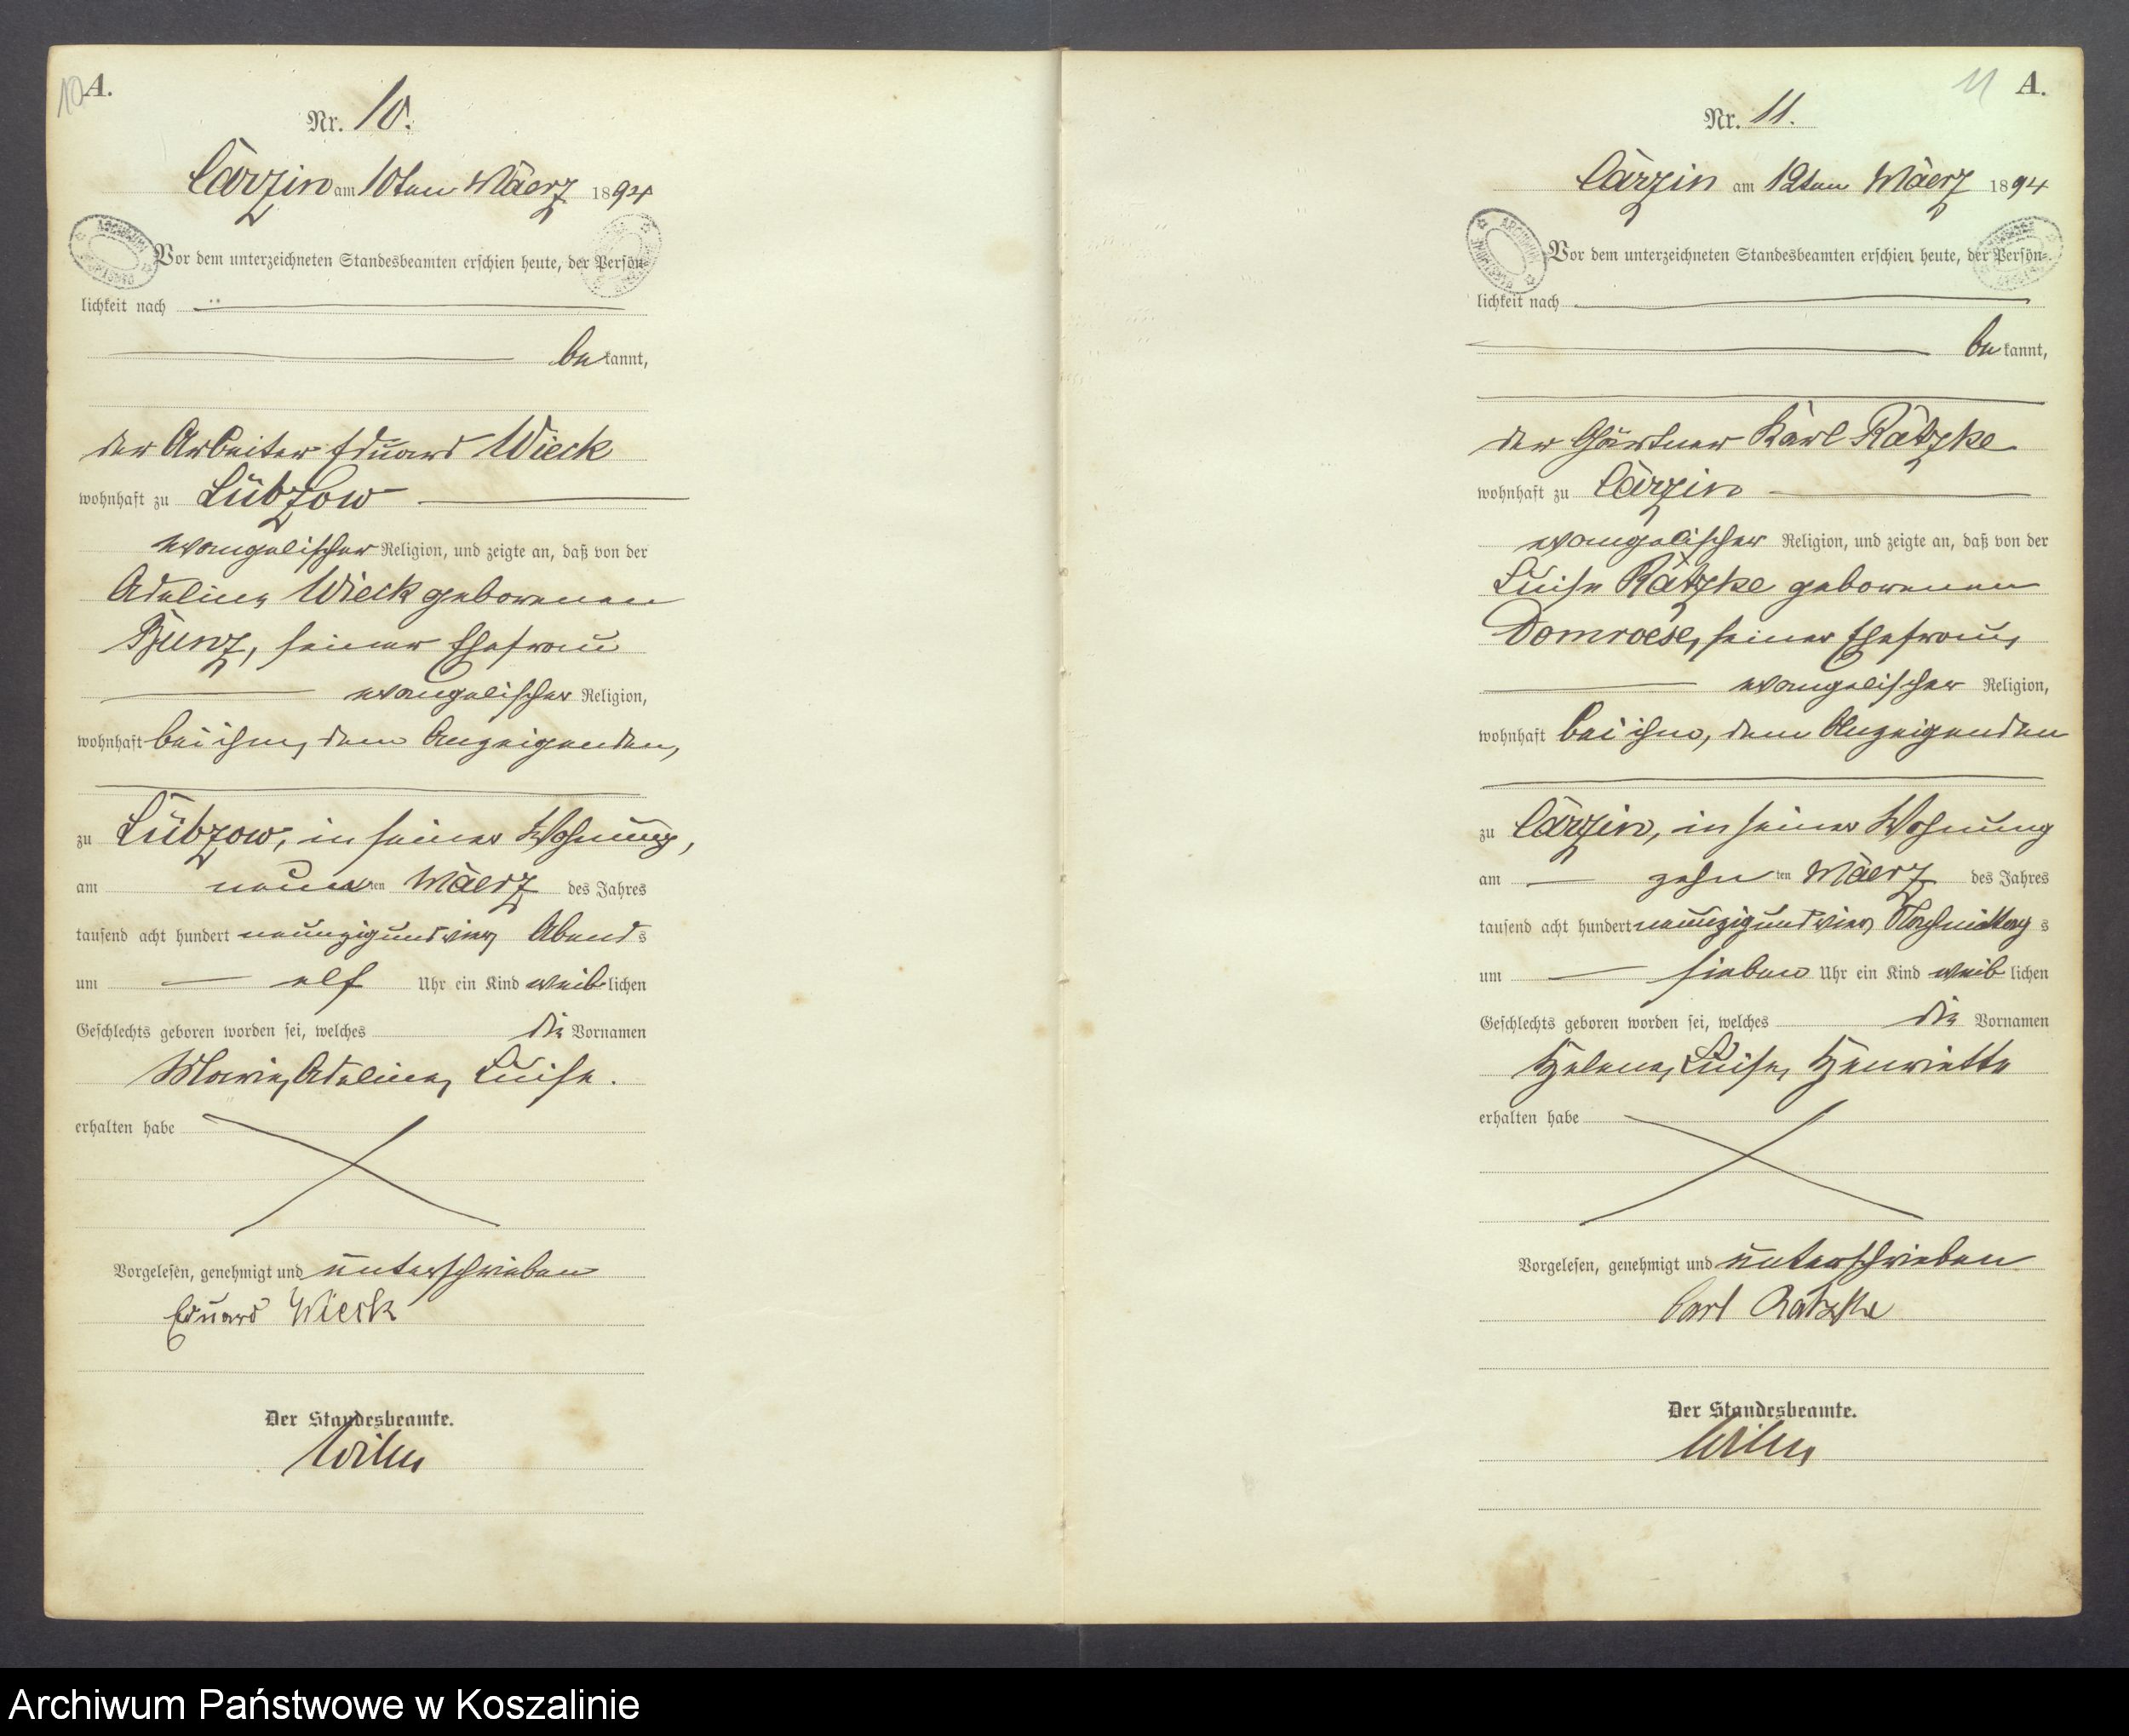 10 A.
Nr. 10.
Carzin am 10ten Maerz 1894
Vor dem unterzeichneten Standesbeamten erschien heute, der Persön-
lichkeit nach
be kannt,
der Arbeiter Eduard Wieck
wohnhaft zu Lübzow
evangelischer Religion, und zeigte an, daß von der
Adeline Wieck geborenen
Bunz, seiner Ehefrau
evangelischer Religion,
wohnhaft bei ihm, dem Anzeigenden,
zu Lübzow, in seiner Wohnung,
am neun ten Maerz des Jahres
tausend acht hundert neunzig und vier Abend s
um elf Uhr ein Kind weib lichen
Geschlechts geboren worden sei, welches die Vornamen
Marie, Adeline, Luise.
erhalten habe
Vorgelesen, genehmigt und unterschrieben
Eduard Wieck
Der Standesbeamte.
11 A.
Nr. 11.
Carzin am 12ten Maerz 1894
Vor dem unterzeichneten Standesbeamten erschien heute, der Persön-
lichkeit nach
be kannt,
der Gärtner Karl Ratzke
wohnhaft zu Carzin
evangelischer Religion, und zeigte an, daß von der
Luise Ratzke geborenen
Domroese, seiner Ehefrau,
evangelischer Religion,
wohnhaft bei ihm, dem Anzeigenden
zu Carzin, in seiner Wohnung
am zehn ten Maerz des Jahres
tausend acht hundert neunzig und vier, Nachmittag s
um sieben Uhr ein Kind weib lichen
Geschlechts geboren worden sei, welches die Vornamen
Helene, Luise, Henriette
erhalten habe
Vorgelesen, genehmigt und unterschrieben
Carl Ratzke
Der Standesbeamte.
Archiwum Państwowe w Koszalinie